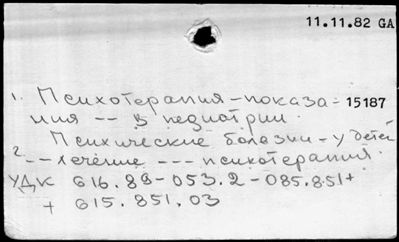 11.11.82 GA
1. Психотерапия - показа- 15187
ния -- в педиатрии.
2. Психические болезни - у детей
-- лечение --- психотерапия.
УДК 616.89-053.2-085.851+
+ 615.851.03